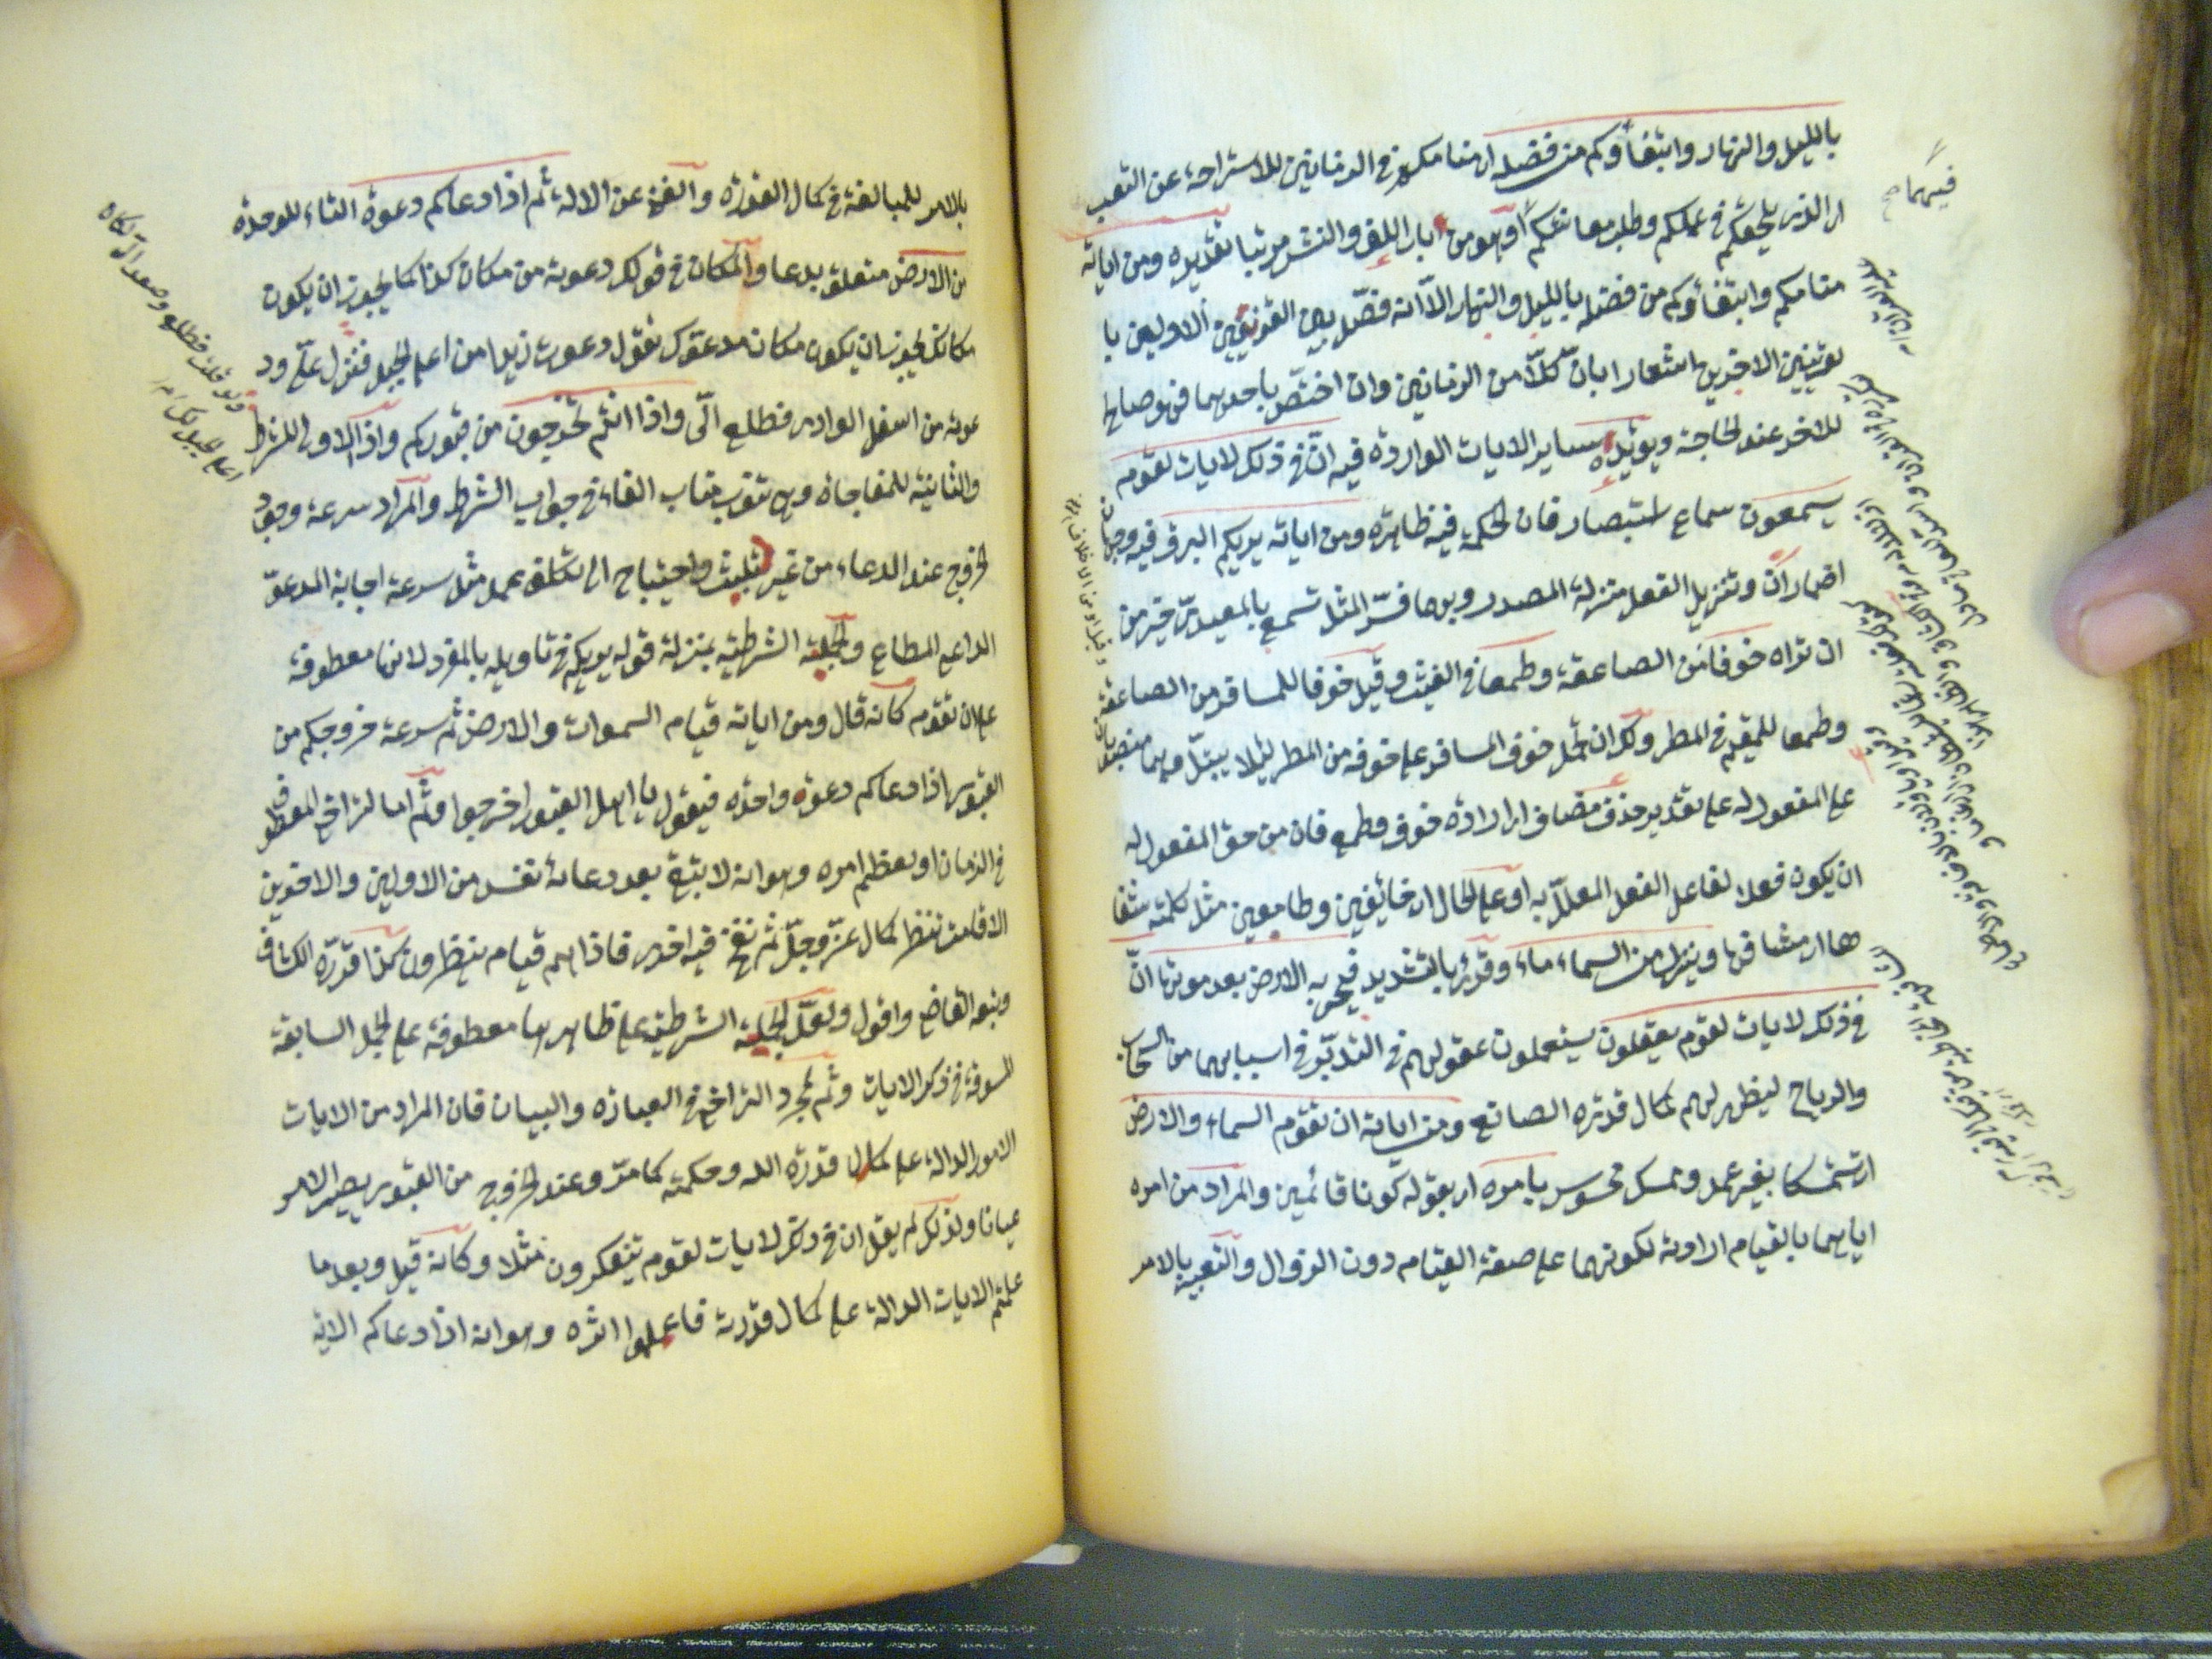 بالليل والنهار وابتغاؤكم من فضله اى منامكم فى الزمانين للاستراحة عن التعب
اى الذى يلحقكم فى عملكم وطلب معاشكم او هو من باب اللف والنشر مرتبا تقديره ومن اياته
منامكم وابتغاؤكم من فضله بالليل والنهار الا انه فصل بين القرينين الاولين با
لقرينين الاخرين اشعارا بان كلا من الزمانين وان اختص باحدهما فهو صالح
للاخر عند الحاجة ويؤيده ساير الايات الواردة فيه ان فى ذلك لايات لقوم
يسمعون سماع استبصار فان الحكمة فيه ظاهرة ومن اياته يريكم البرق فيه وجهان
اضمار ان وتنزيل الفعل منزلة المصدر وبهما فسر المثل تسمع بالمعيدى خير من
ان تراه خوفا من الصاعقة وطمعا فى الغيث وقيل خوفا للمسافر من الصاعقة
وطمعا للمقيم فى المطر ولك ان تحمل خوف المسافر على خوفه من المطر ليلا يبتل وهما منصوبان
على المفعول له على تقدير حذف مضاف اى ارادة خوف وطمع فان من حق المفعول له
ان يكون فعلا لفاعل الفعل المعلل به او على الحال اى خائفين وطامعين مثل كلمته شفا
ها اى مشافها وينزل من السماء ماء وقرئ بالتشديد فيحيى به الارض بعد موتها ان
فى ذلك لايات لقوم يعقلون يستعملون عقولهم فى التدبر فى اسبابهما من السحاب
والرياح ليظهر لهم كمال قدرة الصانع ومن اياته ان تقوم السماء والارض
اى تتمسكا بغير عمد وممسك محسوس بامره اى بقوله كونا قائمين والمراد من امره
اياهما بالقيام ارادته لكونهما على صفة القيام دون الزوال والتعبير بالامر
فيهما
بالامر للمبالغة فى كمال القدرة والغنى عن الالة ثم اذا دعاكم دعوة التاء للوحدة
من الارض متعلق بدعا والمكان فى قولك دعوته من مكان كذا كما يجوز ان يكون
مكانك يجوز ان يكون مكان مدعوك تقول دعوت زيدا من اعلى الجبل فنزل على ود
عوته من اسفل الوادى فطلع الى واذا انتم تخرجون من قبوركم واذا الاولى للشرط
والثانية للمفاجاة وهى تنوب مناب الفاء فى جواب الشرط والمراد سرعة وجود
الخروج عند الدعاء من غير تلبث واحتياج الى تكلف عمل مثل سرعة اجابة المدعو
الداعى المطاع والجملة الشرطية بمنزلة قوله يريكم فى تاويله بالمفرد لانها معطوفة
على ان تقوم كانه قال ومن اياته قيام السموات والارض ثم سرعة خروجكم من
القبور اذا دعاكم دعوة واحدة فيقول يا اهل القبور اخرجوا وثم اما لتراخى المعطوف
فى الزمان او لعظم امره وهو انه لا يبقى بعد دعائه نفس من الاولين والاخرين
الا قامت تنظر كما قال عز وجل ثم نفخ فيه اخرى فاذا هم قيام ينظرون كذا قرره الكشاف
وتبعه القاضى واقول ولعل الجملة الشرطية على ظاهرها معطوفة على الجمل السابقة
المسوقة فى ذكر الايات وثم لمجرد التراخى فى العبارة والبيان فان المراد من الايات
الامور الدالة على كمال قدرة الله وحكمته كما مر وعند الخروج من القبور يصير الامر
عيانا ولذلك لم يقل ان فى ذلك لايات لقوم يتفكرون مثلا وكانه قيل وبعد ما
علمتم الايات الدالة على كمال قدرته فاعلموا اثره وهو انه اذا دعاكم الاية
فطلع وصعد الى
اعلى الجبل